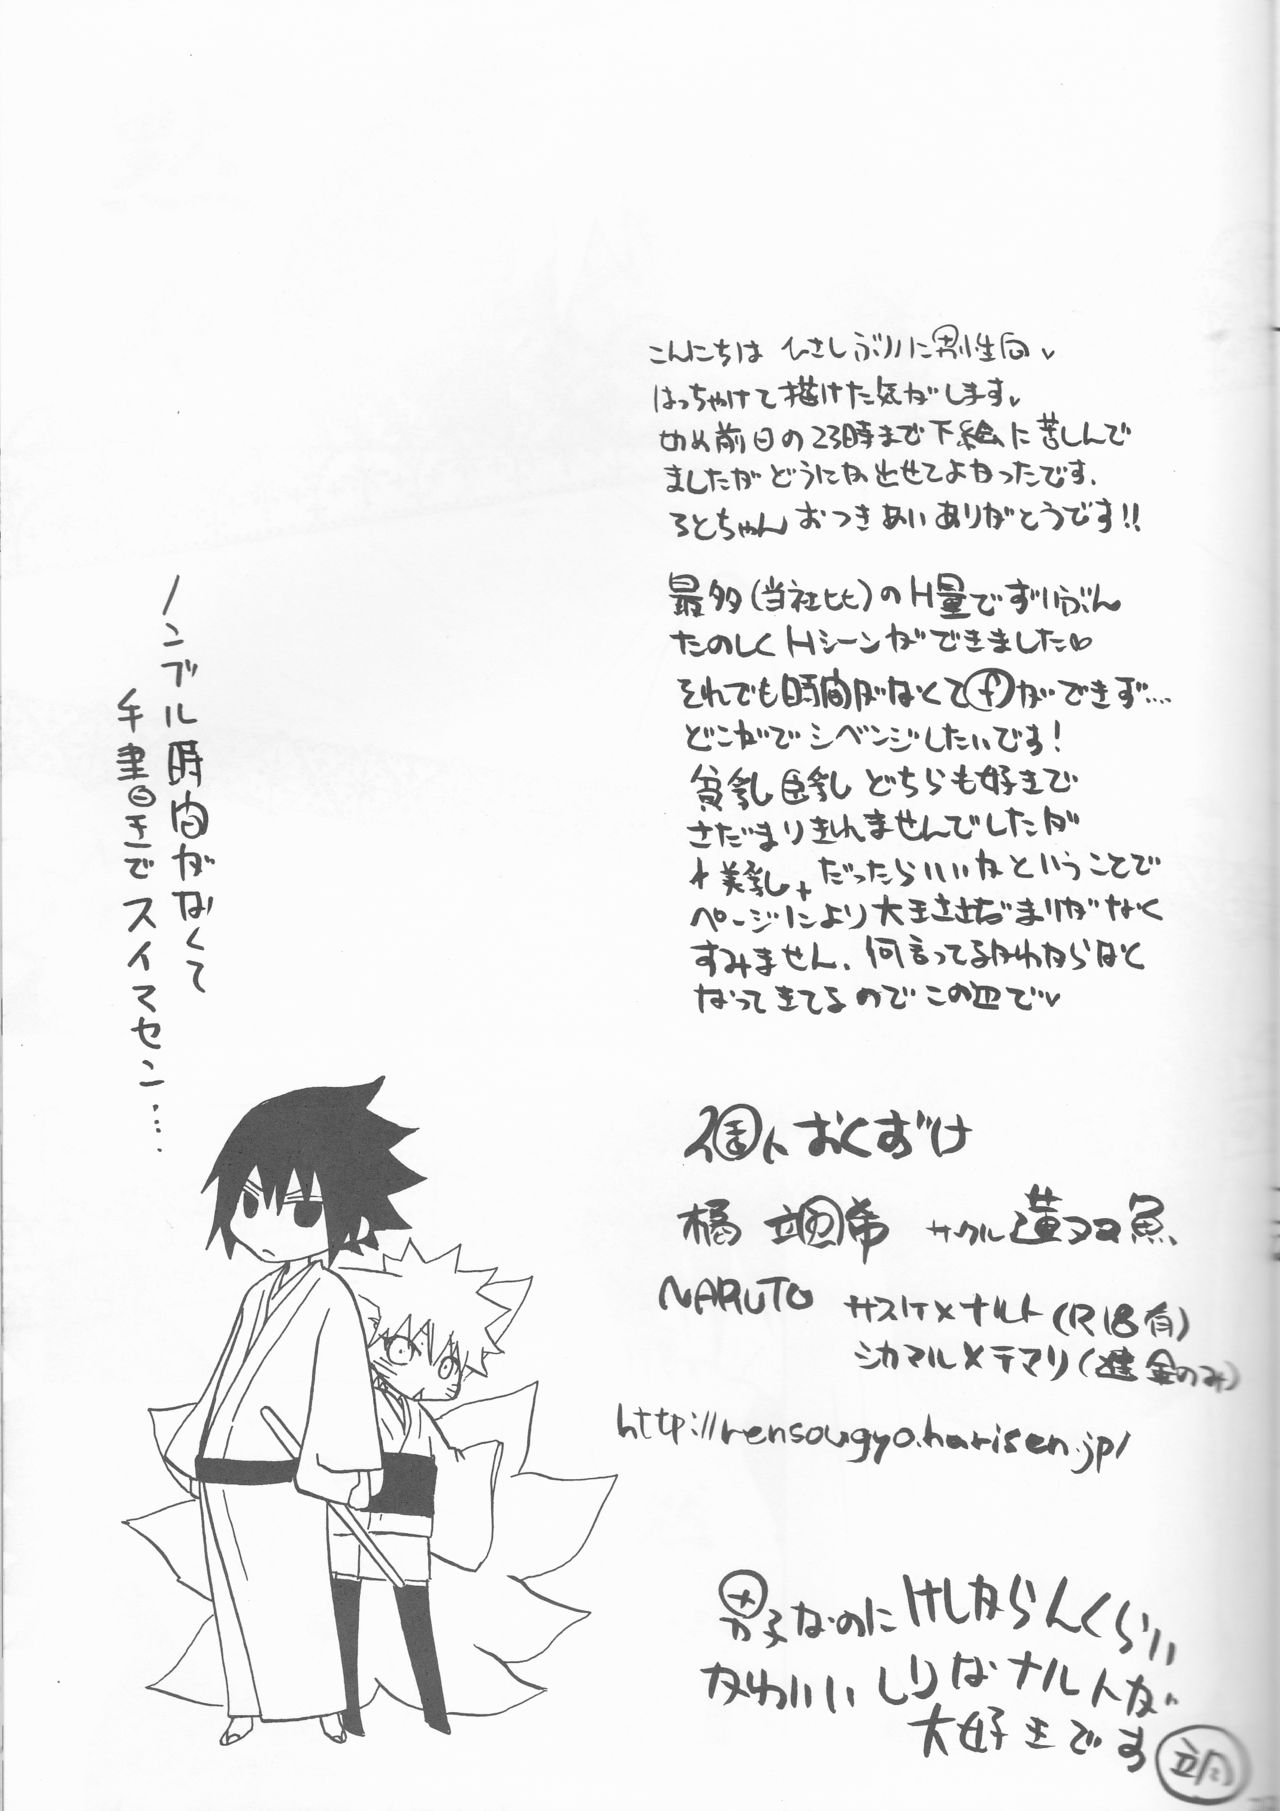 こんにちは ひさしぶりに男性向♥
はっちゃけて描けた気がします♥
〆め前日の23時まで下絵に苦しんで
ましたがどうにか出せてよかったです.
るとちゃん おつきあいありがとうです!!
最多(当社比)のH量でずいぶん
たのしくHシーンができました♡
それでも時間がなくて が できず....
どこかでリベンジしたいです!
貧乳 巨乳 どちらも好きで
さだまりきれませんでしたが
美乳 だったらいいねということで
ページにより大きささだまりがなく
すみません、何言ってるかわからなく
なってきてるのでこの辺で♥
ノンブル時間がなくて
手書きでスイマセン....
個人おくづけ
橘 颯希 サークル 蓮双魚
NARUTO サスケ×ナルト(R18有)
シカマル×テマリ(健全のみ)
http://rensougyo.harisen.jp/
男子なのに けしからんくらい
かわいいしりなナルトが
大好きです